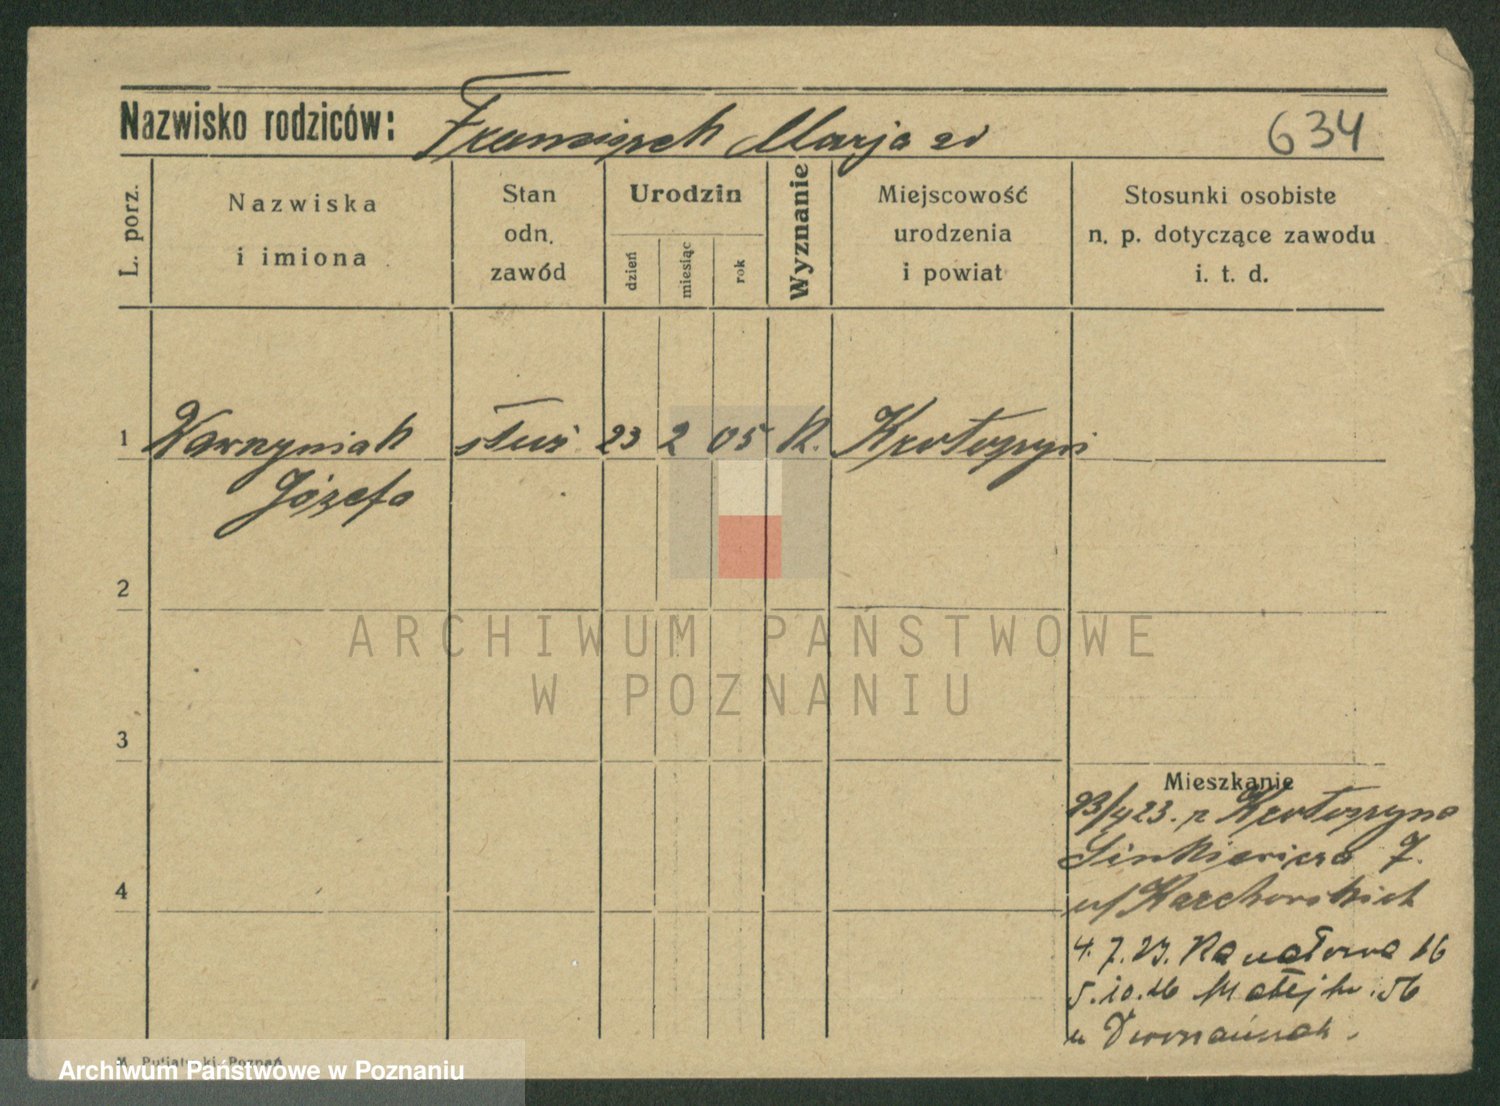 Nazwisko rodziców: Franciszek Marja 634
L. porz.
Nazwiska
i imiona
Stan
odn.
zawód
Urodzin
dzień
miesiąc
rok
Wyznanie
Miejscowość
urodzenia
i powiat
Stosunki osobiste
n. p. dotyczące zawodu
i. t. d.
1 Wawrzyniak służ. 23 2 05 K. Krotoszyn
Józefa
2
ARCHIWUM PAŃSTWOWE
W POZNANIU
3
Mieszkanie
23/4 23. z Krotoszyna
Sienkiewicza 7.
4
4. 7. 23. Kanałowa 16
5. 10. 26 Matejki 56
u
M. Putiatycki, Poznań
Archiwum Państwowe w Poznaniu